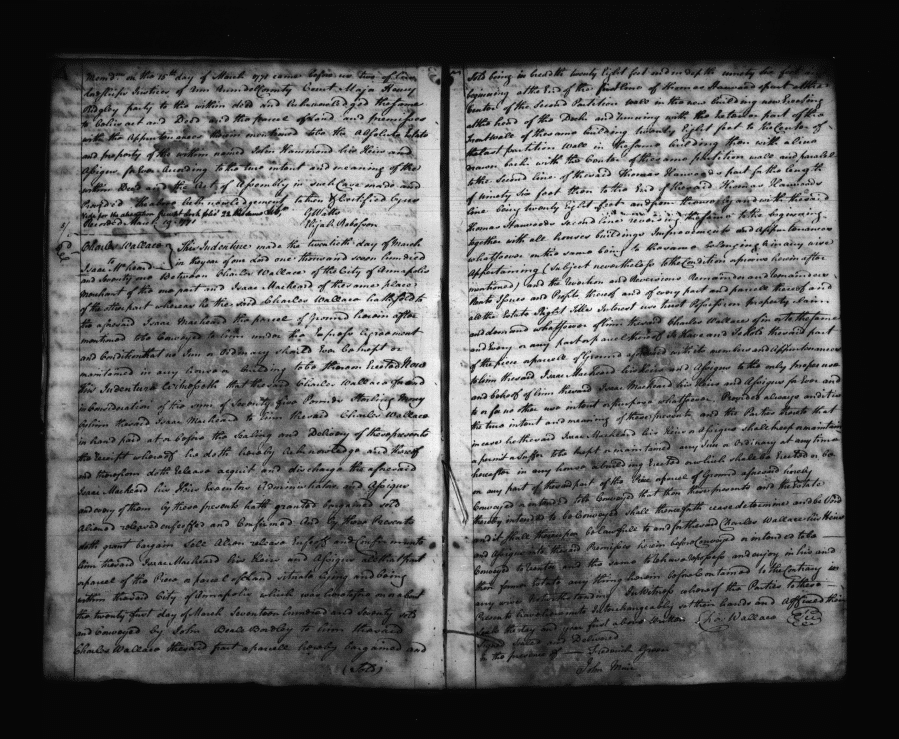 Memdm on the 15th day of March 1771 came before us two of his
Lordships Justices of Ann Arundel County Court Major Henry
Ridgley party to the within deed and acknowledged the same
to be his act and Deed and the parcel of Land and premisses
with the Appurtenances therein mentioned to be the Absolute Estate
and property of the within named John Hammond his Heirs and
Assigns for Ever According to the true intent and meaning of the
within Deed and the Acts of Assembly in such Case made and
Provided the above Acknowledgement taken & Certified by us
G Watts
Recorded March 1771 Elijah Robosson
Charles Wallace This Indenture made the twentieth day of March
to in the year of our Lord one thousand seven hundred
Isaac McHeard and seventy one Between Charles Wallace of the City of Annapolis
merchant of the one part and Isaac MacHeard of the same place
of the other part whereas he the said Charles Wallace hath sold to
the aforesaid Isaac MacHeard the parcel of Ground herein after
mentioned to be Conveyed to him under the Express Agreement
and Condition that no Inn or Ordinary should Ever be kept or
maintained in any house or building to be thereon Erected Now
this Indenture Witnesseth that the said Charles Wallace for and
in Consideration of the sum of Seventy five Pounds Sterling Money
by him the said Isaac MacHeard to him the said Charles Wallace
in hand paid at or before the Sealing and Delivery of these presents
the Receipt whereof he doth hereby Acknowledge and thereof
and therefrom doth Release acquit and discharge the aforesaid
Isaac MacHeard his Heirs Executors Administrators and Assigns
and every of them by these presents hath granted bargained sold
Aliened released enfeoffed and Confirmed And by these Presents
doth grant bargain Sell Alien release Enfeoff and Confirm unto
him the said Isaac MacHeard his Heirs and Assigns all that part
or parcel of the Piece or parcel of Land situate lying and being
within the said City of Annapolis which was on or about
the twenty first day of March Seventeen hundred and Seventy
and Conveyed by John Beale Bordley to him the said
Charles Wallace the said part or parcell hereby bargained and
(Sold)
Sold being in breadth twenty Eight feet and in depth the ninety six feet
beginning at the End of the first line of Thomas Harwoods part at the
Center of the Second Partition wall in the new building now Erecting
at the head of the Dock and running with the Exterior part of the
front wall of the same building twenty Eight feet to the Center of
the last partition Wall in the same building then with a line
drawn back with the Center of the same partition wall and parallel
to the Second line of the said Thomas Harwoods part for the length
of ninety Six feet then to the End of the said Thomas Harwoods
line being twenty Eight feet and from thence by and with the said
Thomas Harwoods Second line reversing the same to the beginning
together with all houses buildings Improvements and Appurtenances
whatsoever on the same being or to the same belonging in any wise
Appertaining (Subject nevertheless to the Condition aforesaid herein after
mentioned) and the Reversion and Reversions Remainder and Remainders
Rents Issues and Profits thereof and of every part and parcell thereof and
all the Estate Right Title Interest use trust Possession property claim
and demand whatsoever of him the said Charles Wallace of in or to the same
and Every or any part or parcel thereof To Have and To Hold the said part
of the piece or parcell of Ground aforesaid with the members and Appurtenances
to him the said Isaac MacHeard his Heirs and Assigns to the only proper use
and behoof of him the said Isaac MacHeard his Heirs and Assigns for Ever and
to or for no other use intent or purpose whatsoever Provided always and it is
the true intent and meaning of these presents and the Parties thereto that
in case he the said Isaac MacHeard his Heirs or Assigns shall keep or maintain
or permit or Suffer to be kept or maintained any Inn or Ordinary at any time
hereafter in any house or building Erected or which shall be Erected or be
on any part of the said part of the Piece or parcel of Ground aforesaid hereby
Conveyed or intended to be Conveyed that then these presents and the Estate
thereby intended to be Conveyed shall thenceforth cease determine and be Void
and it shall thereupon be lawfull to and for the said Charles Wallace his Heirs
and Assigns into the said Premisses herein before Conveyed or intended to be
Conveyed to Enter and the same to have repossess and enjoy in his and
their former Estate any thing herein before Contained to the Contrary in
any wise notwithstanding In Witness whereof the Parties to these
Presents have hereunto Interchangeably set their hands and Affixed their
Seals the day and year first above written Chs Wallace
Signed Sealed and Delivered
in the presence of Frederick Green
John Muir